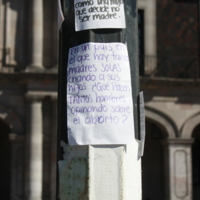 como una mujer
que decide no
ser madre.
En un país en
el que hay tantas
madres SOLAS
criando a sus
hijos ¿Qué hacen
TANTOS hombres
opinando sobre
el aborto?